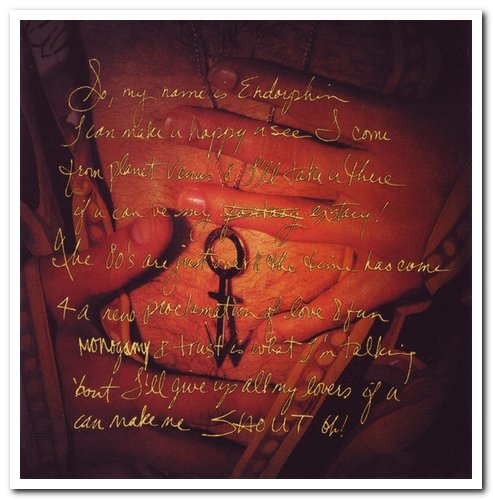 So, my name is Endorphin
I can make u happy u see I come
from planet Venus & I'll take u there
if u can be my fantasy extasy!
The 80's are just over & the time has come
4 a new proclamation of love & fun
Monogamy & trust is what I'm talking
'bout I'll give up all my lovers if u
can make me SHOUT oh!